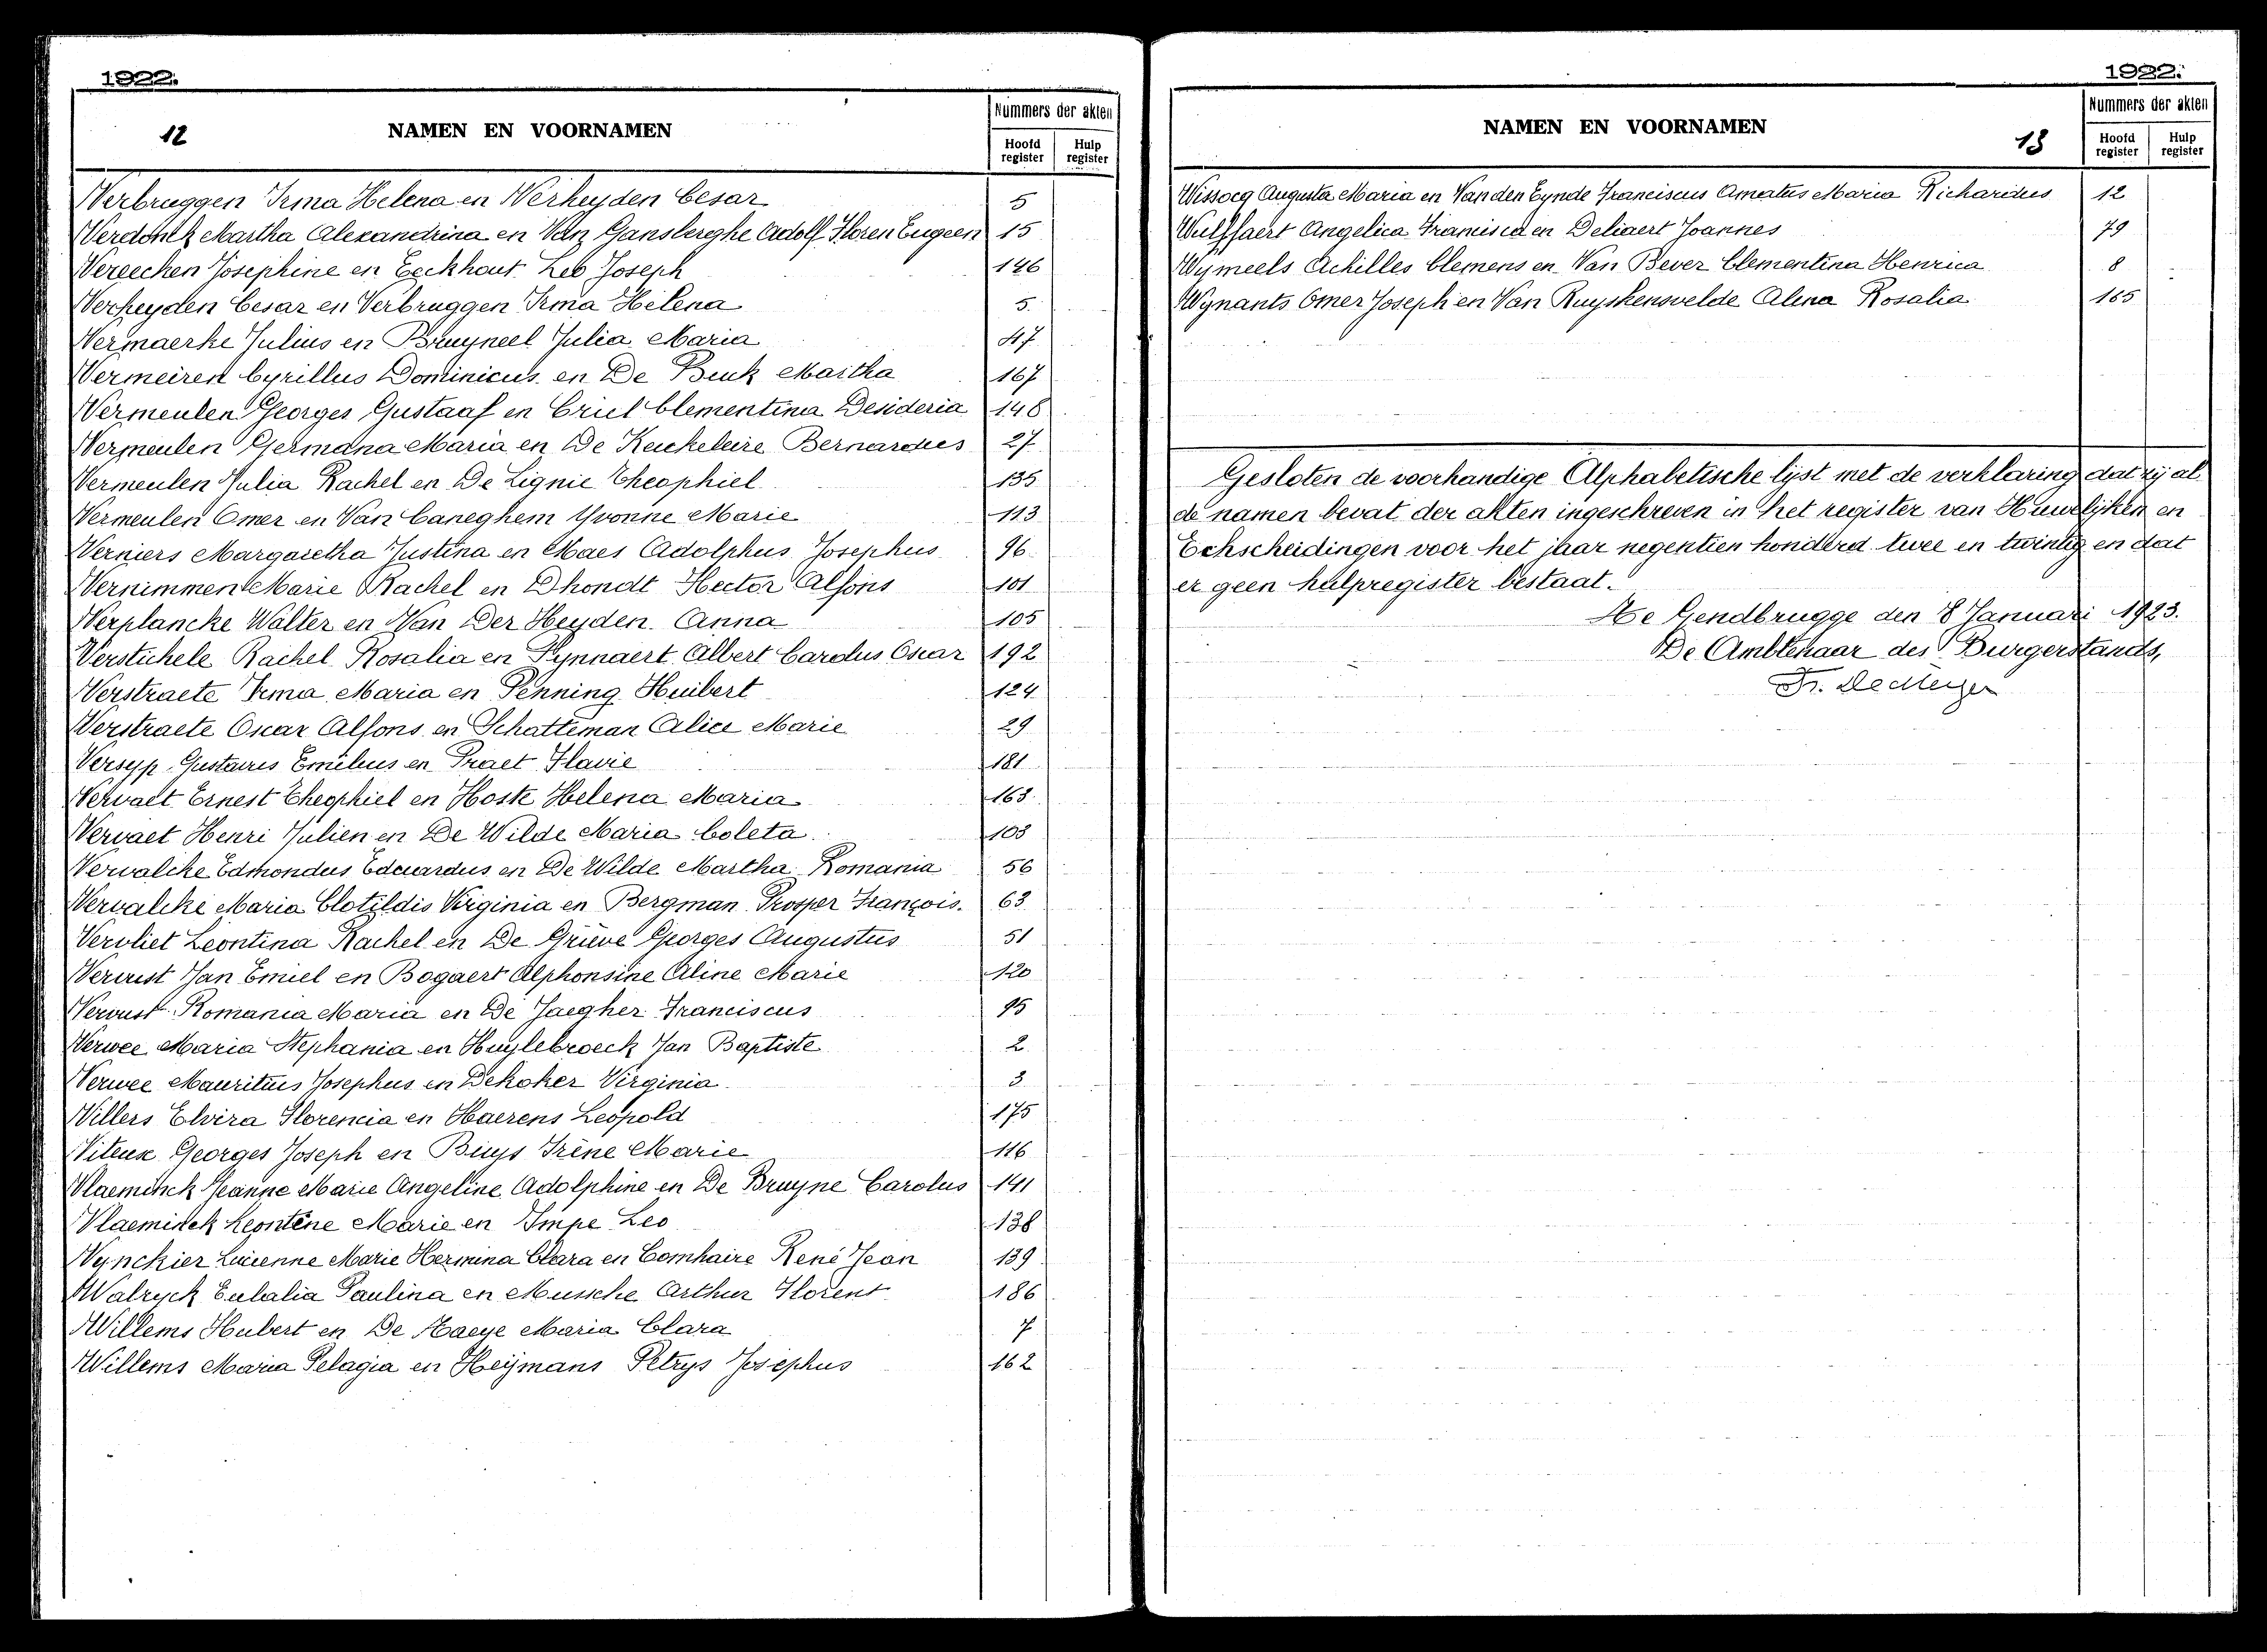 1922.
12
NAMEN EN VOORNAMEN
Nummers der akten
Hoofd register
Hulp register
Verbruggen Irma Helena en Verheyden Cesar 5
Verdonck Martha Alexandrina en Van Gansberghe Adolf Floren Eugeen 15
Vereecken Josephine en Eeckhout Leo Joseph 146
Verheyden Cesar en Verbruggen Irma Helena 5.
Vermaerke Julius en Bruyneel Julia Maria 47
Vermeiren Cyrillus Dominicus en De Buck Martha 167
Vermeulen Georges Gustaaf en Criel Clementina Desideria 148
Vermeulen Germana Maria en De Keukeleire Bernardus 27
Vermeulen Julia Rachel en De Lignie Theophiel 135
Vermeulen Omer en Van Caneghem Yvonne Marie 113
Verniers Margaretha Justina en Maes Adolphus Josephus 96
Vernimmen Marie Rachel en Dhondt Hector Alfons 101
Verplancke Walter en Van Der Heyden Anna 105
Verstichele Rachel Rosalia en Pynnaert Albert Carolus Oscar 192
Verstraete Irma Maria en Penning Huibert 124
Verstraete Oscar Alfons en Schatteman Alice Marie 29
Versyp Gustavus Emilius en Praet Flavie 181
Vervaet Ernest Theophiel en Hoste Helena Maria 163
Vervaet Henri Julien en De Wilde Maria Coleta 103
Vervalcke Edmondus Eduardus en De Wilde Martha Romania 56
Vervalcke Maria Clotildis Virginia en Bergman Prosper François. 63
Vervliet Leontina Rachel en De Grieve Georges Augustus 51
Vervust Jan Emiel en Bogaert Alphonsine Aline Marie 120
Vervust Romania Maria en De Jaegher Franciscus 95
Verwee Maria Stephania en Huylebroeck Jan Baptiste 2
Verwee Mauritius Josephus en Dekoker Virginia 3
Villers Elvira Florencia en Haerens Leopold 175
Viteux Georges Joseph en Buys Irène Marie 116
Vlaeminck Jeanne Marie Angeline Adolphine en De Bruyne Carolus 141
Vlaeminck Leontine Marie en Impe Leo 138
Vynckier Lucienne Marie Hermina Clara en Comhaire René Jean 139
Walryck Eulalia Paulina en Mussche Arthur Florent 186
Willems Hubert en De Haeye Maria Clara 7
Willems Maria Pelagia en Heymans Petrys Josephus 162
1922.
NAMEN EN VOORNAMEN
13
Nummers der akten
Hoofd register
Hulp register
Wissocq Augusta Maria en Vanden Eynde Franciscus Amatus Maria Richardus 12
Wulffaert Angelica Francisca en Deliaert Joannes 79
Wymeels Achilles Clemens en Van Bever Clementina Henrica 8
Wynants Omer Joseph en Van Ruyskensvelde Alina Rosalia 165
Gesloten de voorhandige Alphabetische lijst met de verklaring dat zij al
de namen bevat der akten ingeschreven in het register van Huwelijken en
Echscheidingen voor het jaar negentien honderd twee en twintig en dat
er geen hulpregister bestaat.
Te Gendbrugge den 8 Januari 1923.
De Ambtenaar des Burgerstands,